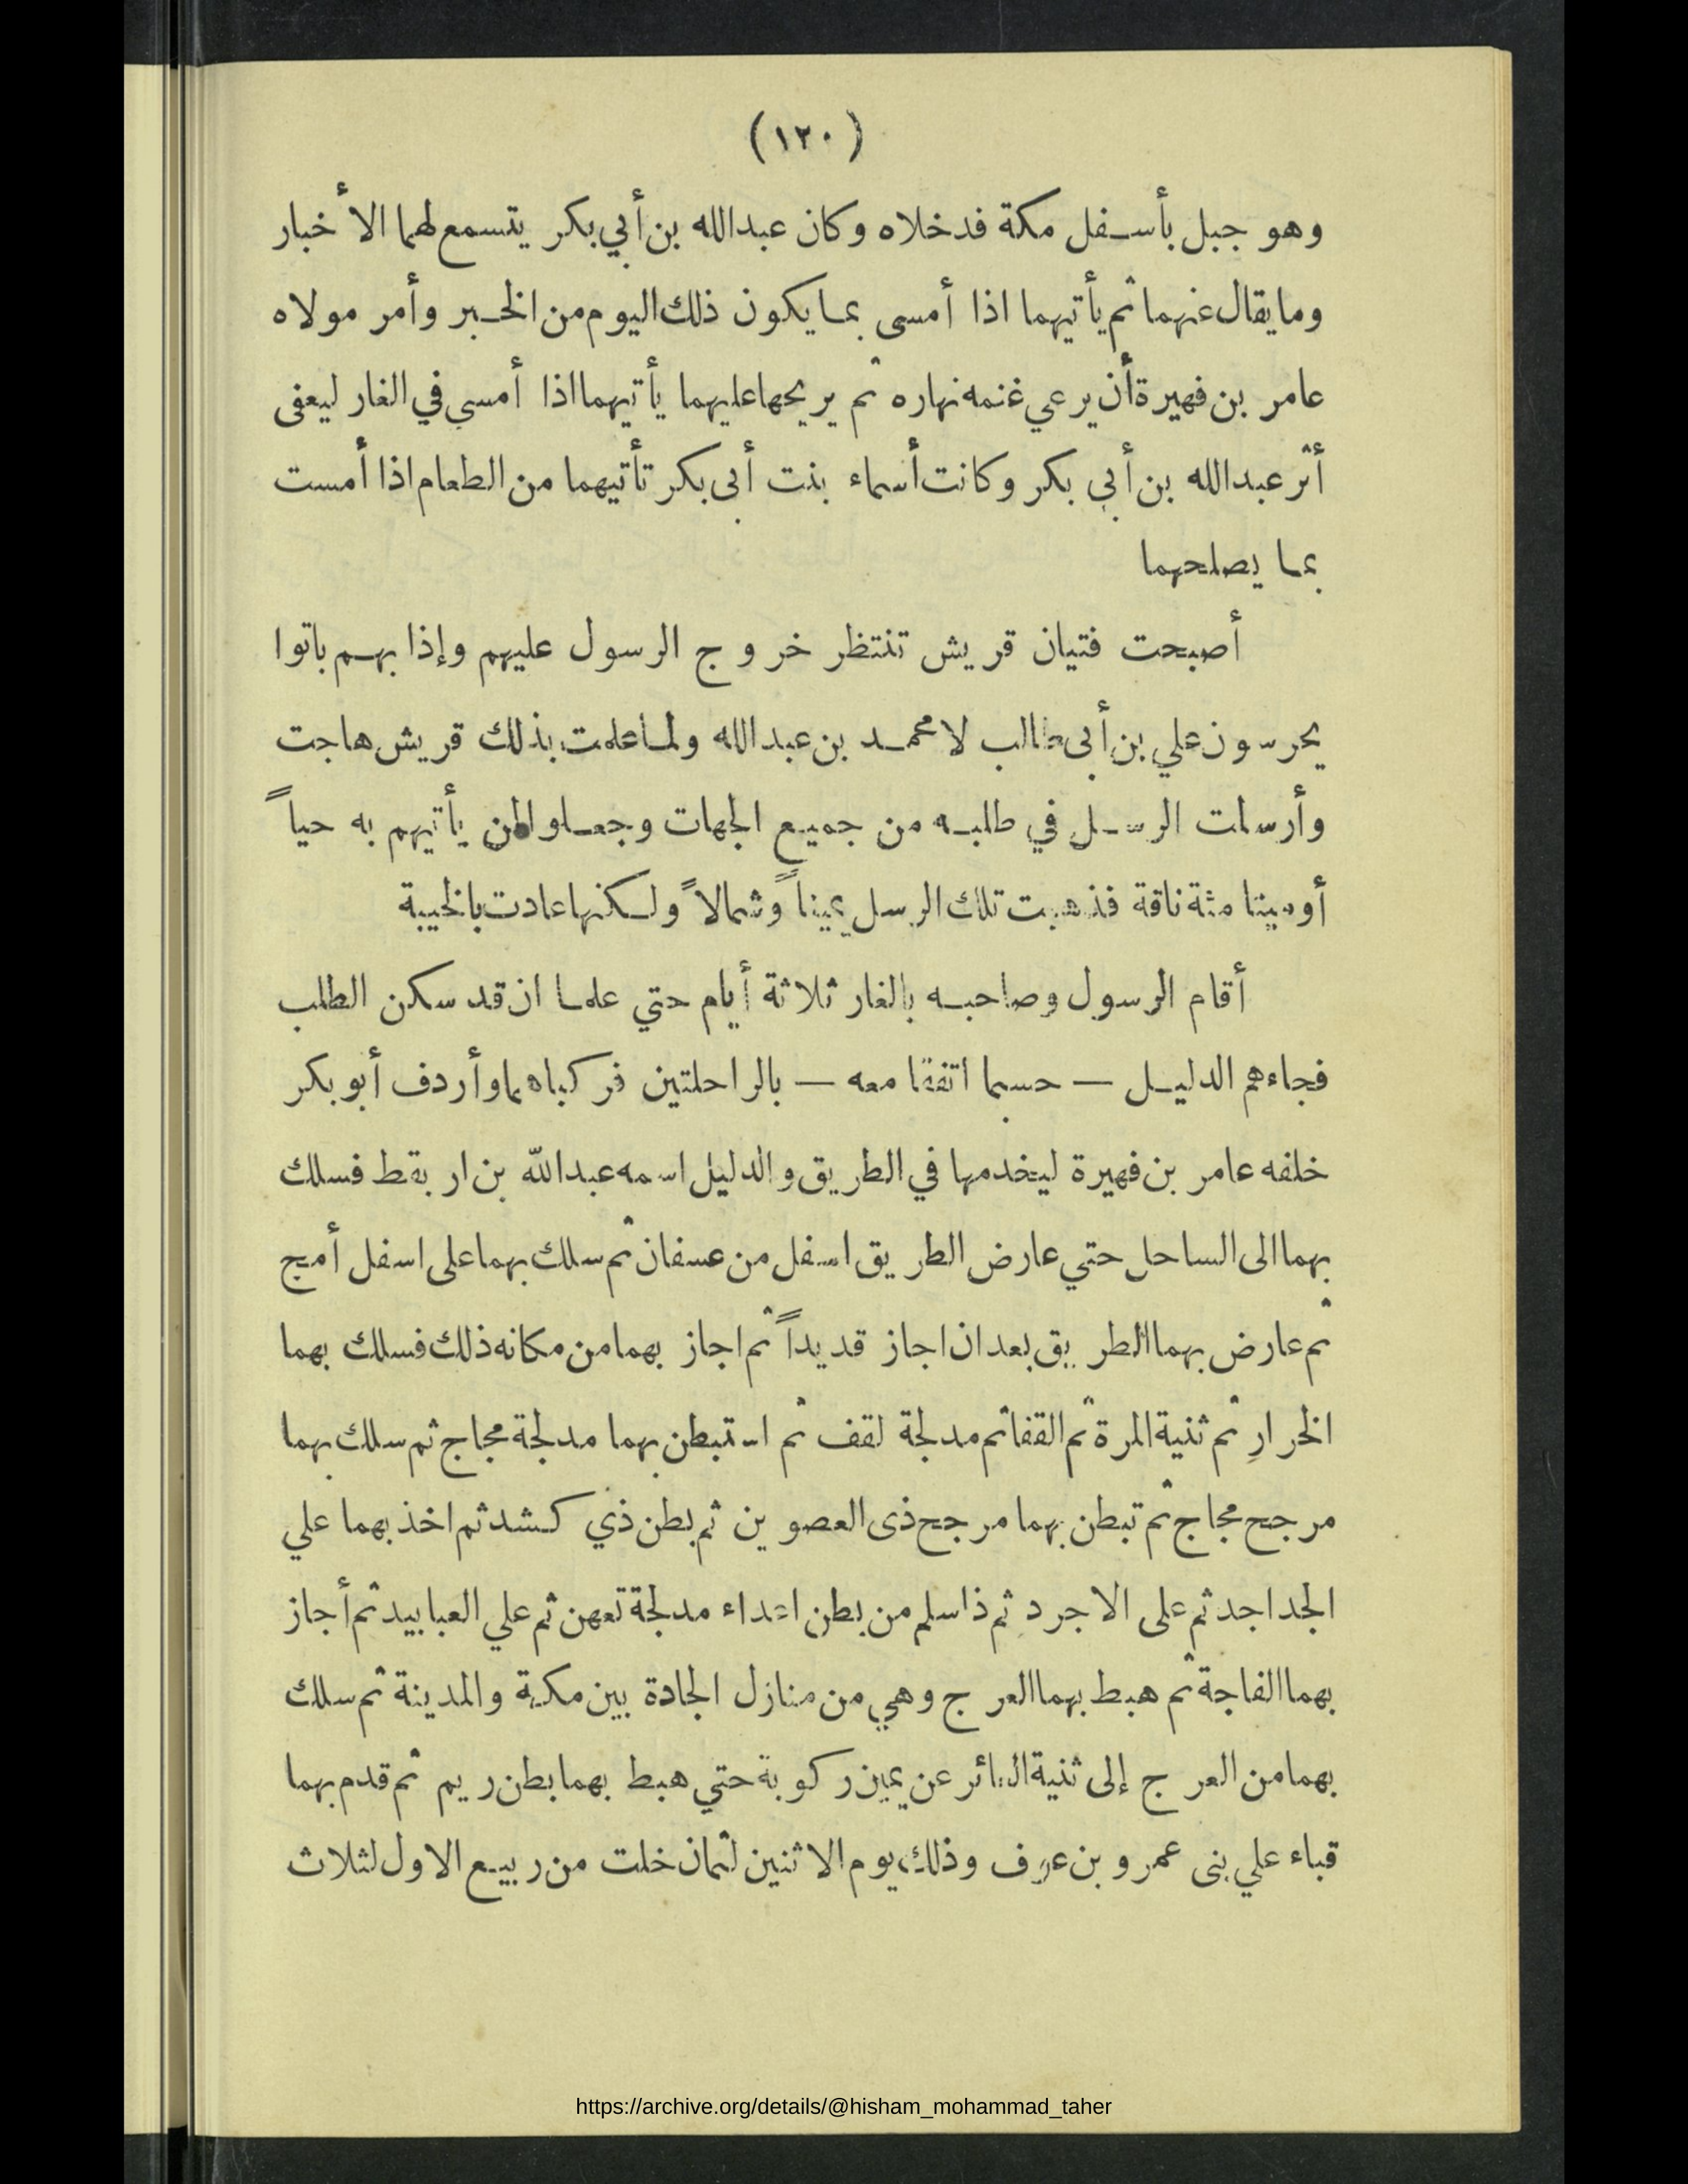 (١٢٠)
وهو جبل بأسفل مكة فدخلاه وكان عبدالله بن أبي بكر يتسمع لهما الأخبار
وما يقال عنهما ثم يأتيهما اذا أمسى بما يكون ذلك اليوم من الخبر وأمر مولاه
عامر بن فهيرة أن يرعي غنمه نهاره ثم يريحها عليهما يأتيهما اذا أمسي في الغار ليعفى
أثر عبدالله بن أبي بكر وكانت أسماء بنت أبى بكر تأتيهما من الطعام اذا أمست
بما يصلحهما
أصبحت فتيان قريش تنتظر خروج الرسول عليهم وإذا بهم باتوا
يحرسون علي بن أبى طالب لا محمد بن عبدالله ولما علمت بذلك قريش هاجت
وأرسلت الرسل في طلبه من جميع الجهات وجعلوا لمن يأتيهم به حياً
أو ميتا مئة ناقة فذهبت تلك الرسل يميناً وشمالاً ولكنها عادت بالخيبة
أقام الرسول وصاحبه بالغار ثلاثة أيام حتي علما ان قد سكن الطلب
فجاءهم الدليل — حسبما اتفقا معه — بالراحلتين فركباهما وأردف أبو بكر
خلفه عامر بن فهيرة ليخدمها في الطريق والدليل اسمه عبدالله بن اريقط فسلك
بهما الى الساحل حتي عارض الطريق اسفل من عسفان ثم سلك بهما على اسفل أمج
ثم عارض بهما الطريق بعد ان اجاز قديداً ثم اجاز بهما من مكانه ذلك فسلك بهما
الخرارِ ثم ثنية المرة ثم القفا ثم مدلجة لقف ثم استبطن بهما مدلجة مجاج ثم سلك بهما
مرجح مجاج ثم تبطن بهما مرجح ذى العصوين ثم بطن ذي كشد ثم اخذ بهما علي
الجداجد ثم على الاجرد ثم ذا سلم من بطن اعداء مدلجة تعهن ثم علي العبابيد ثم أجاز
بهما الفاجة ثم هبط بهما العرج وهي من منازل الجادة بين مكة والمدينة ثم سلك
بهما من العرج إلى ثنية العائر عن يمين ركوبة حتي هبط بهما بطن ريم ثم قدم بهما
قباء علي بنى عمرو بن عوف وذلك يوم الاثنين لثمان خلت من ربيع الاول لثلاث
https://archive.org/details/@hisham_mohammad_taher